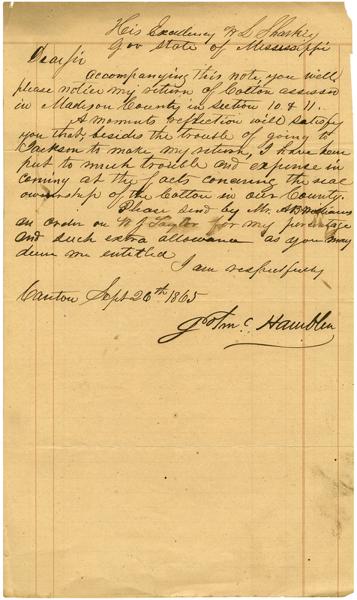 His Excellency W L Sharkey
Gov State of Mississippi
Dear Sir
Accompanying this note, you will
please notice my return of Cotton assessed
in Madison County in section 10 & 11.
A moments reflection will satisfy
you that, beside the trouble of going to
Jackson to make my return, I have been
put to much trouble and expense in
coming at the facts concerning the real
ownership of the Cotton in our County.
Please send by Mr.
an order on Taylor for my percentage
and such extra allowance as you may
deem me entitled
I am respectfully
Canton Sept 26th 1865
Hamblen